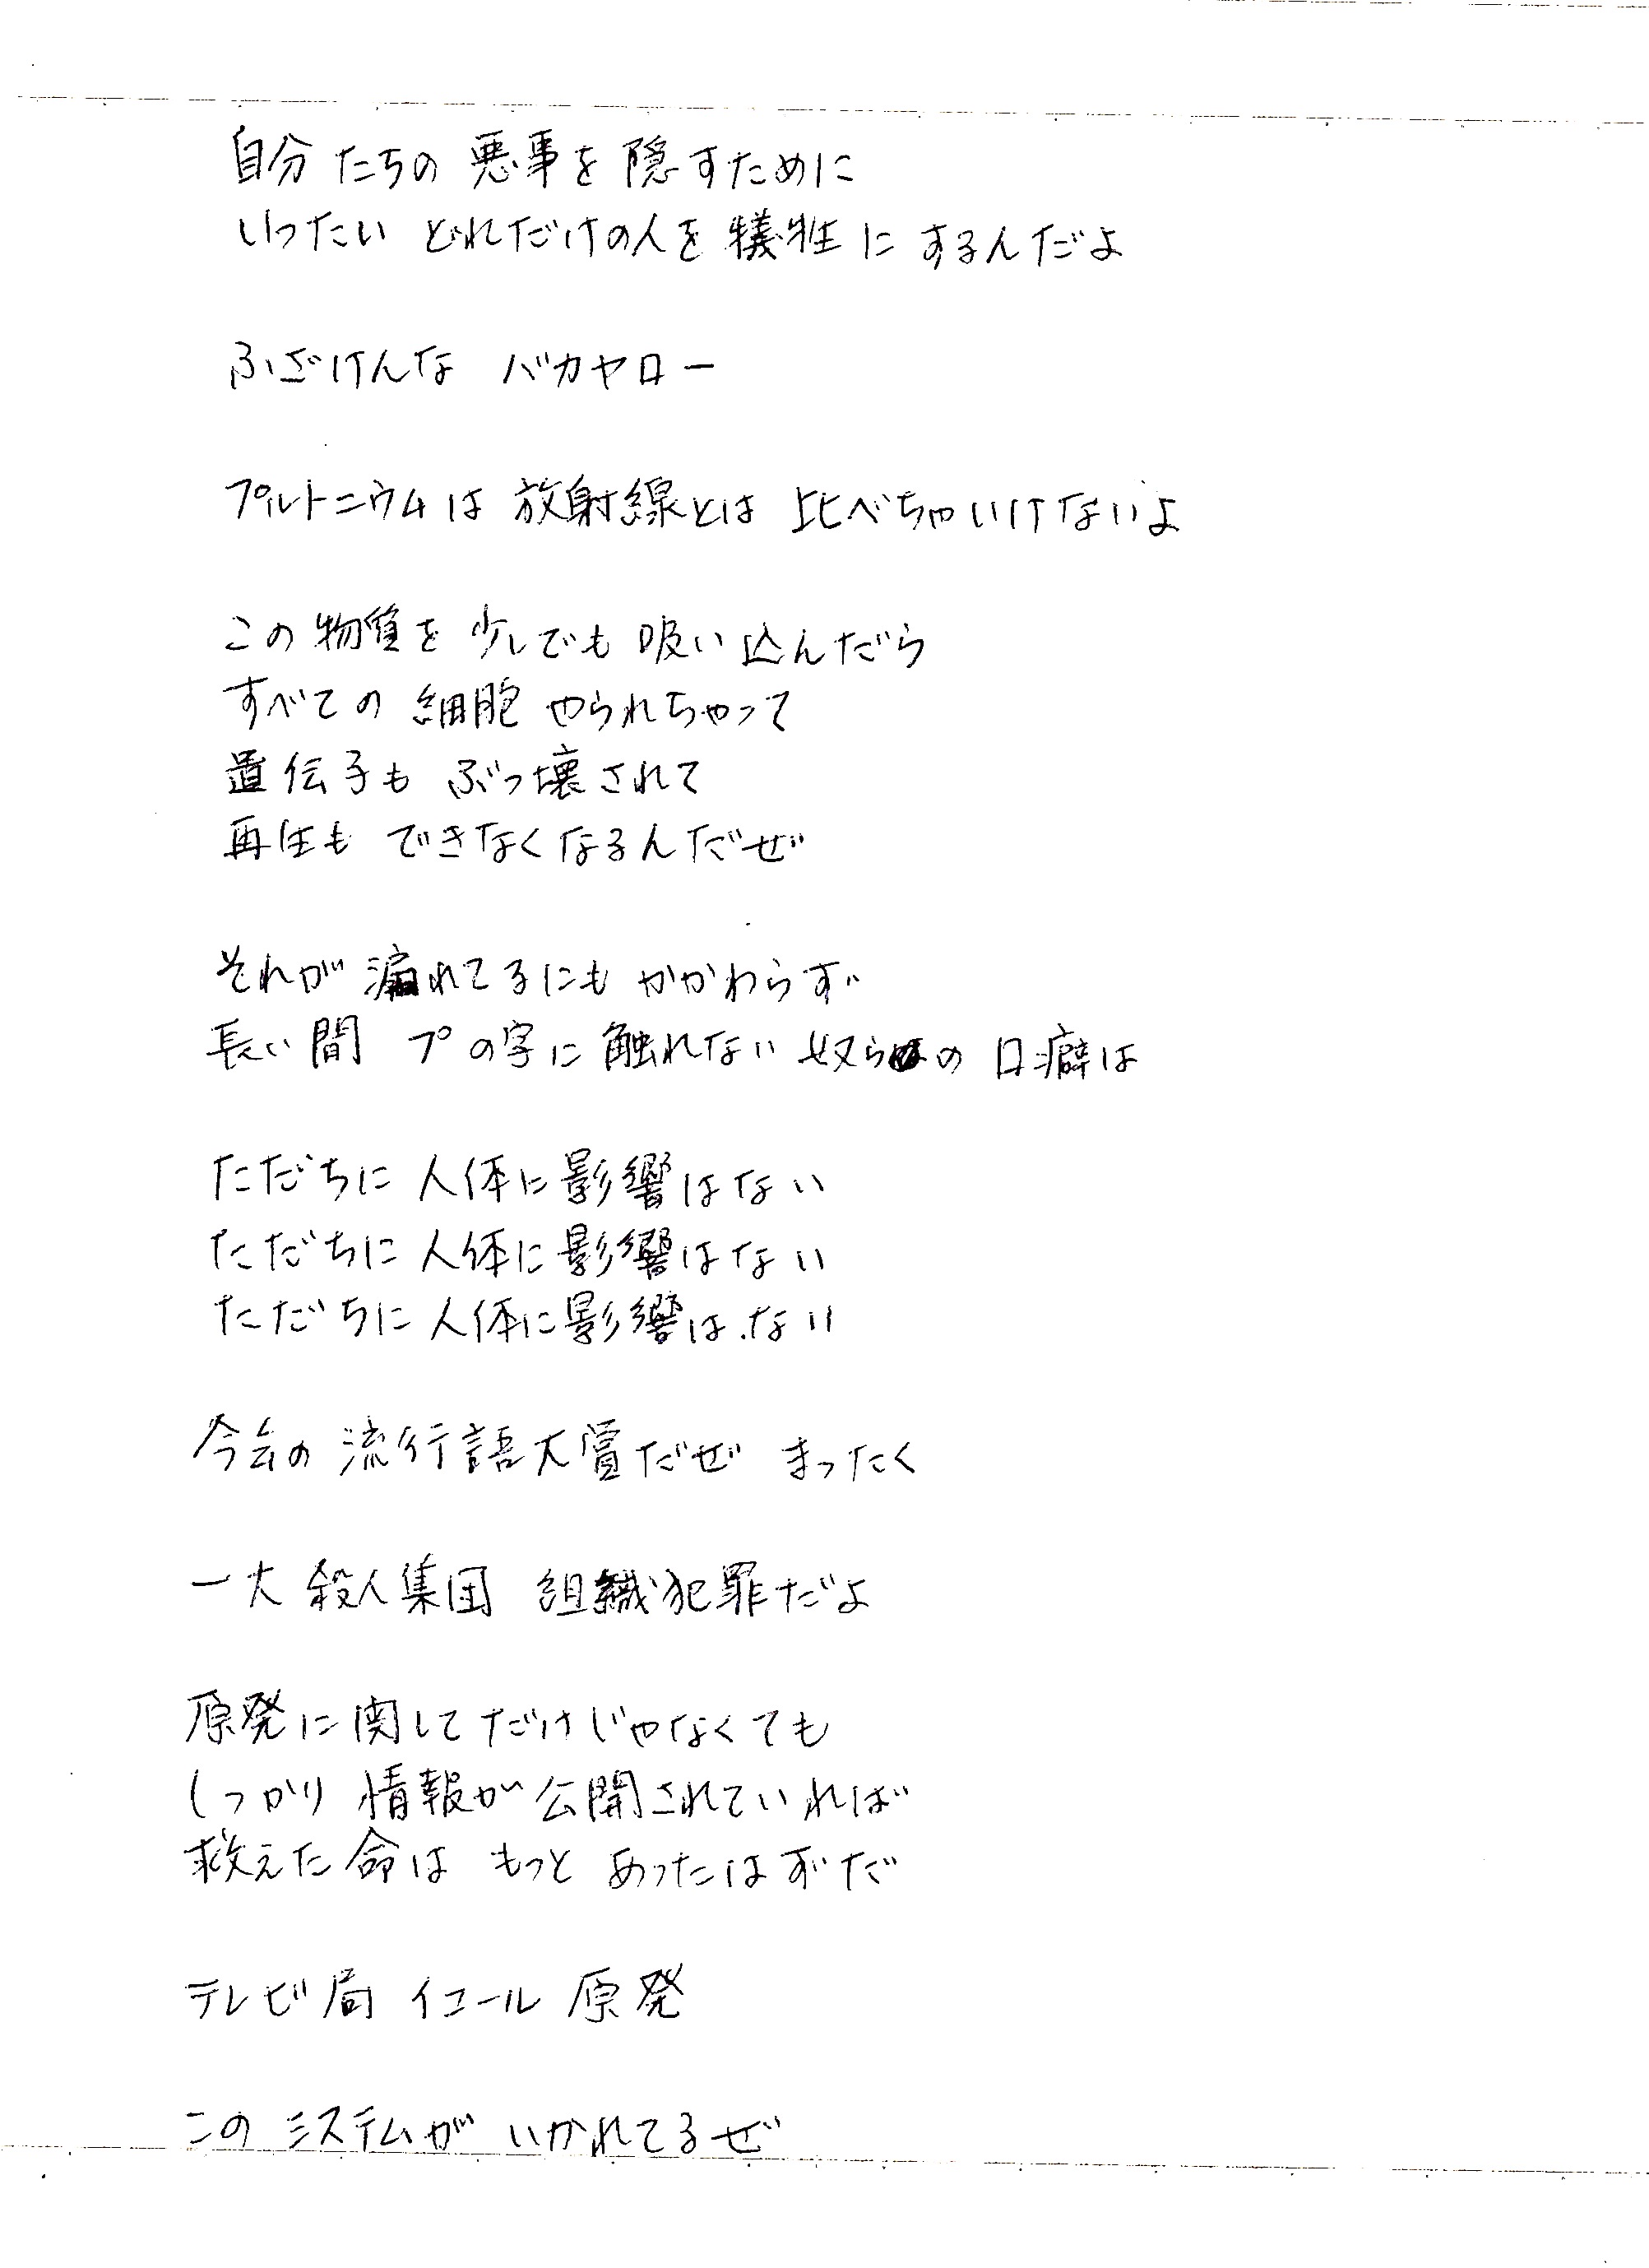 自分たちの悪事を隠すために
いったい どれだけの人を犠牲にするんだよ
ふざけんな バカヤロー
プルトニウムは 放射線とは 比べちゃいけないよ
この物質を少しでも吸い込んだら
すべての細胞 やられちゃって
遺伝子も ぶっ壊されて
再生も できなくなるんだぜ
それが漏れてるにもかかわらず
長い間 プの字に触れない奴らの口癖は
ただちに人体に影響はない
ただちに人体に影響はない
ただちに人体に影響はない
今年の流行語大賞だぜ まったく
一大殺人集団 組織犯罪だよ
原発に関してだけじゃなくても
しっかり情報が公開されていれば
救えた命は もっと あったはずだ
テレビ局 イコール 原発
このシステムが いかれてるぜ